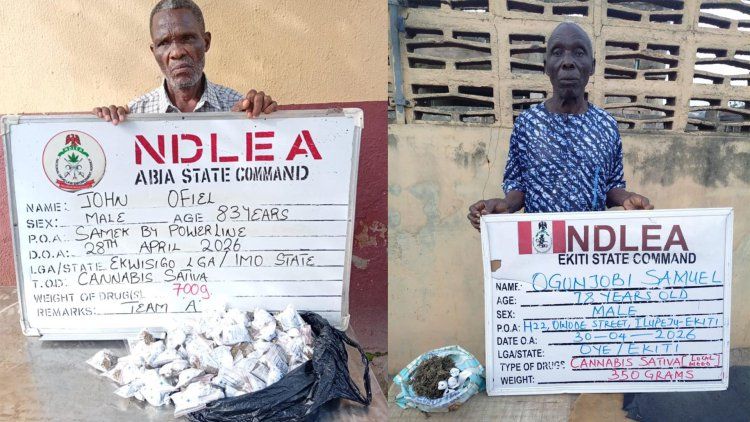 NDLEA
ABIA STATE COMMAND
NAME: JOHN OFIEL
SEX: MALE AGE 83 YEARS
P.O.A: SAMEK BY POWERLINE
D.O.A: 28TH APRIL 2026
LGA/STATE EKWISIGO LGA/ IMO STATE
T.O.D: CANNABIS SATIVA
WEIGHT OF DRUG(S) 700g
REMARKS: TEAM 'A'
NDLEA
EKITI STATE COMMAND
NAME: OGUNJOBI SAMUEL
AGE: 78 YEARS OLD
SEX: MALE
P.O.A: H22, OWODE STREET, ILUPEJU-EKITI
DATE O.A: 30-04-2026
LGA/STATE: OYE/EKITI
TYPE OF DRUGS: CANNABIS SATIVA (LOCAL
WEIGHT: 350 GRAMS